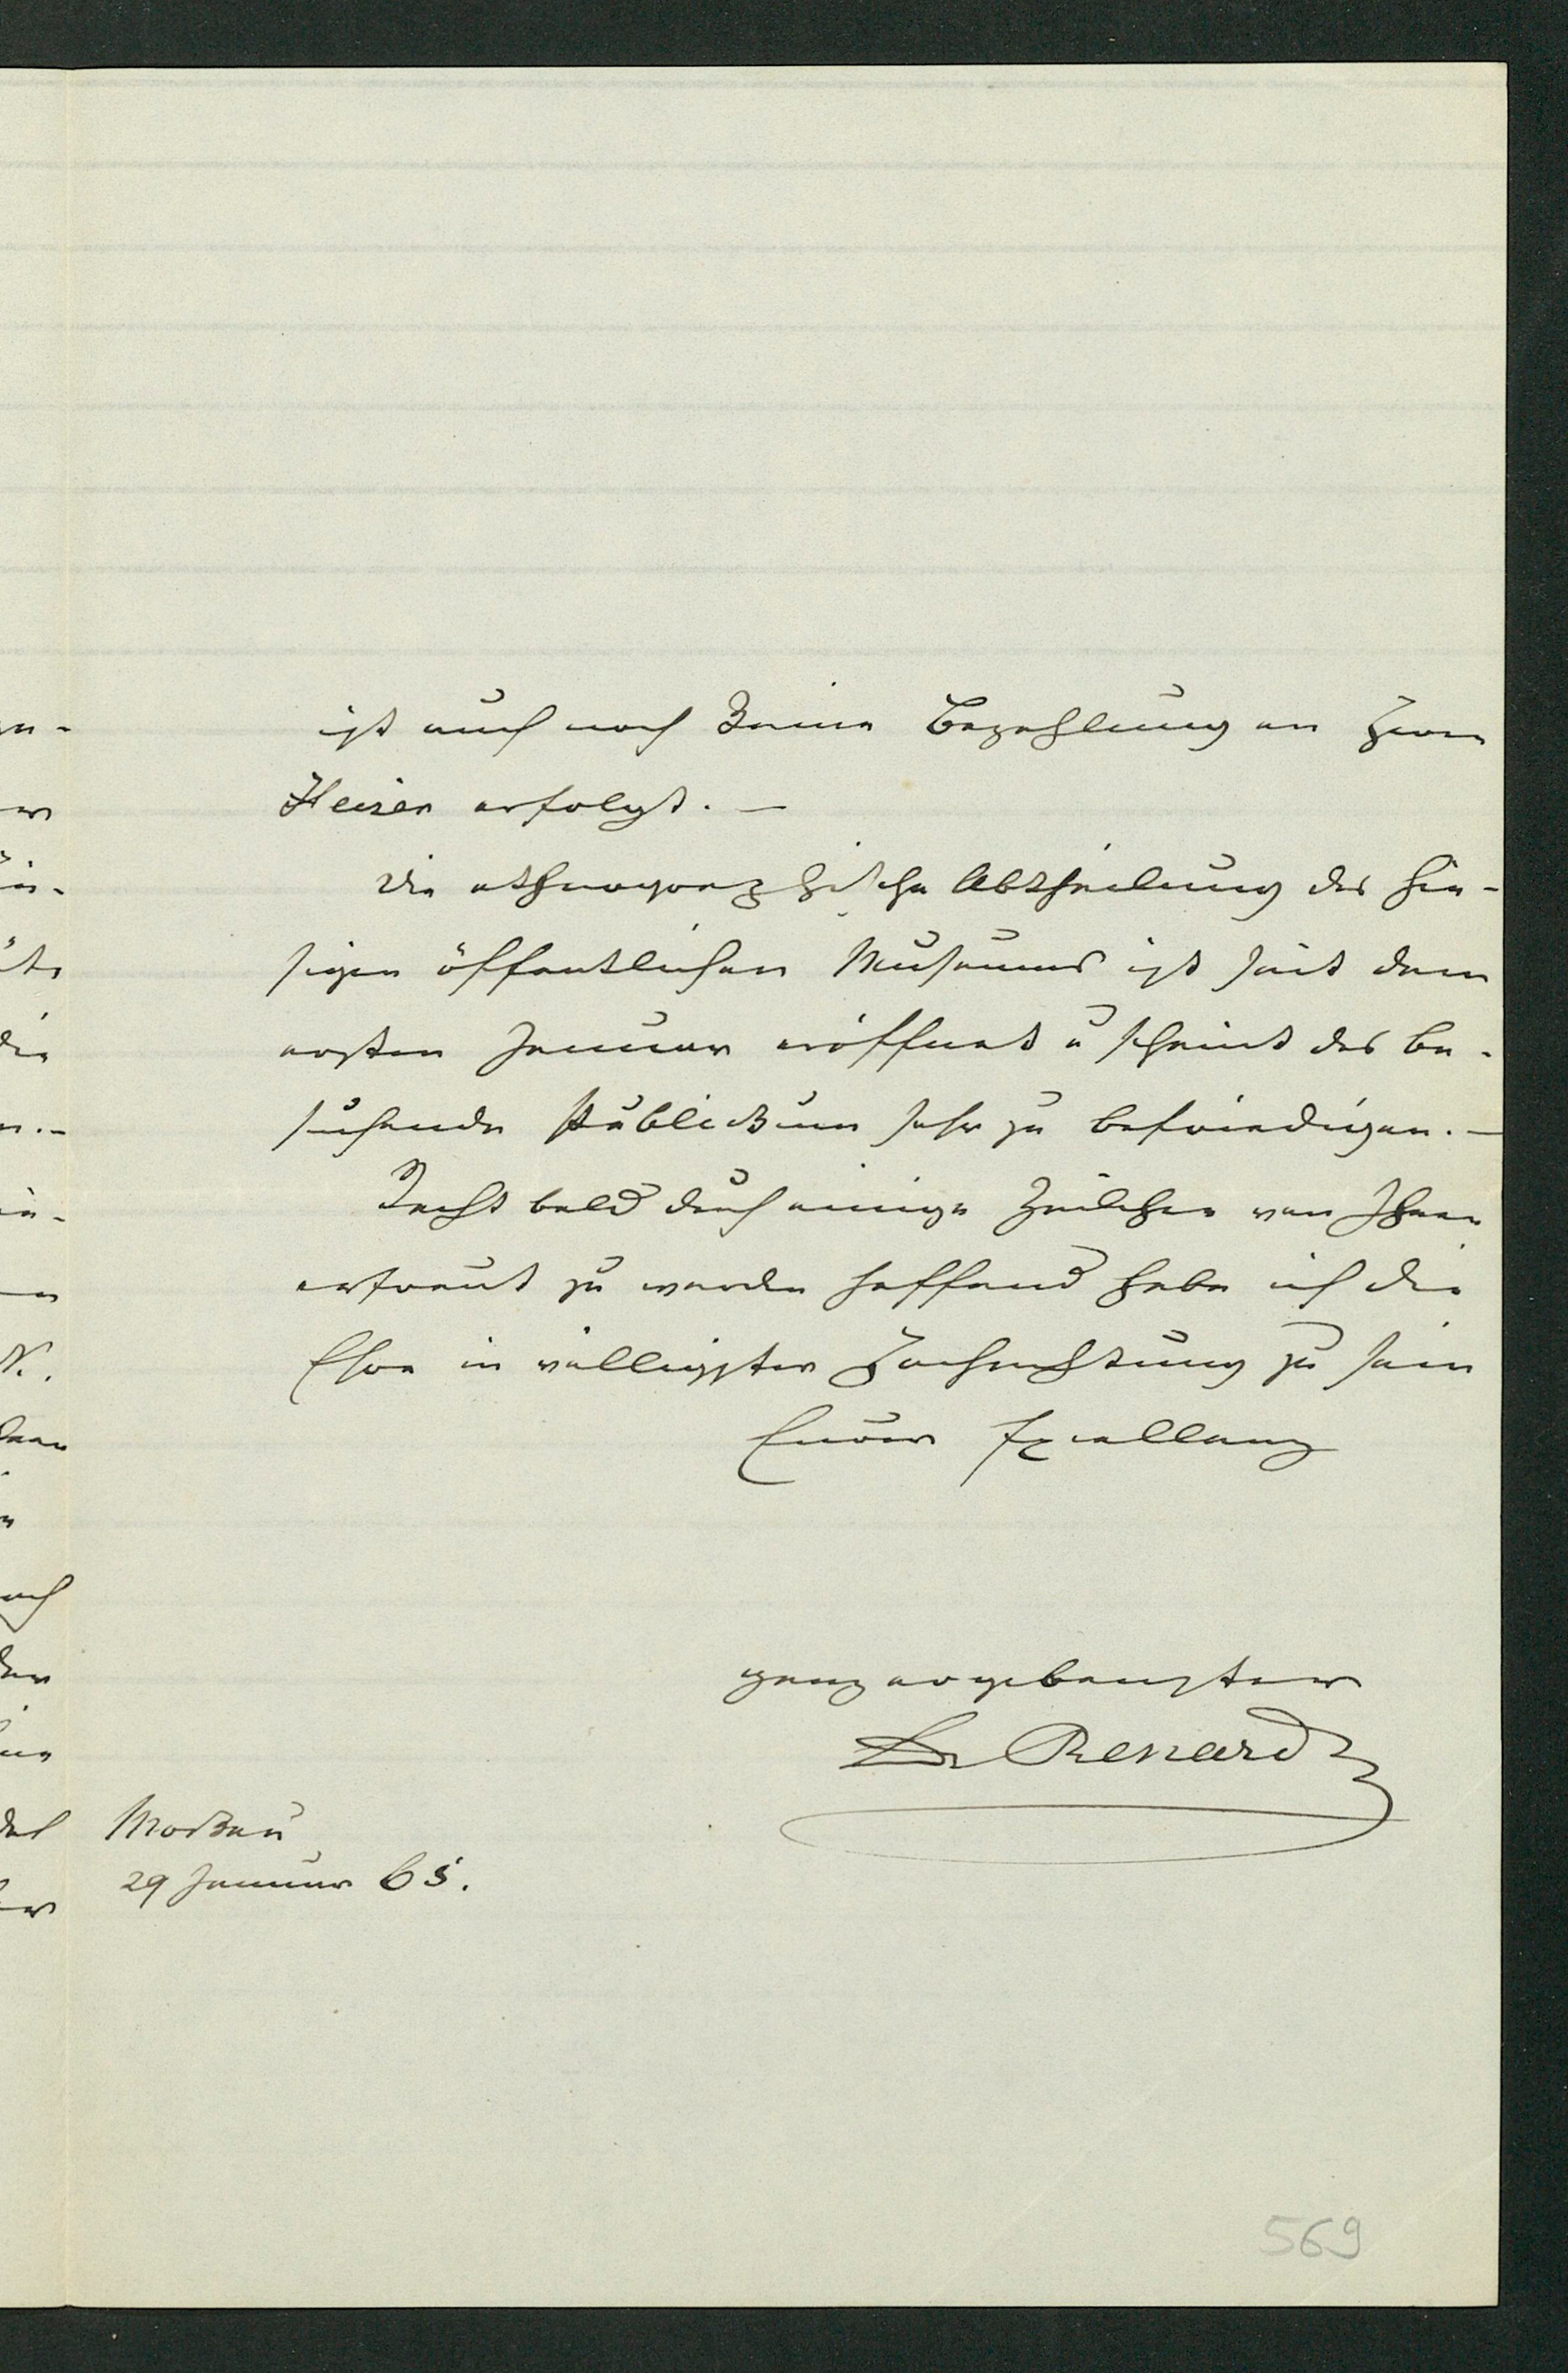 ist auch noch keine Bezahlung an Herrn
Heiser erfolgt. —
Die ethnographische Abtheilung des hie-
sigen öffentlichen Museums ist seit dem
ersten Januar eröffnet u scheint das be-
suchende Publikum sehr zu befriedigen. —
Recht bald durch einige Zeilchen von Ihnen
erfreut zu werden hoffend habe ich die
Ehre in völligster Hochachtung zu sein
Eurer Excellenz
ganz ergebenster
Dr Renard
Moskau
29 Januar 65.
569